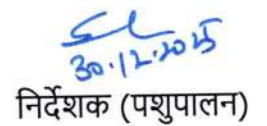 30.12.2025
निर्देशक (पशुपालन)